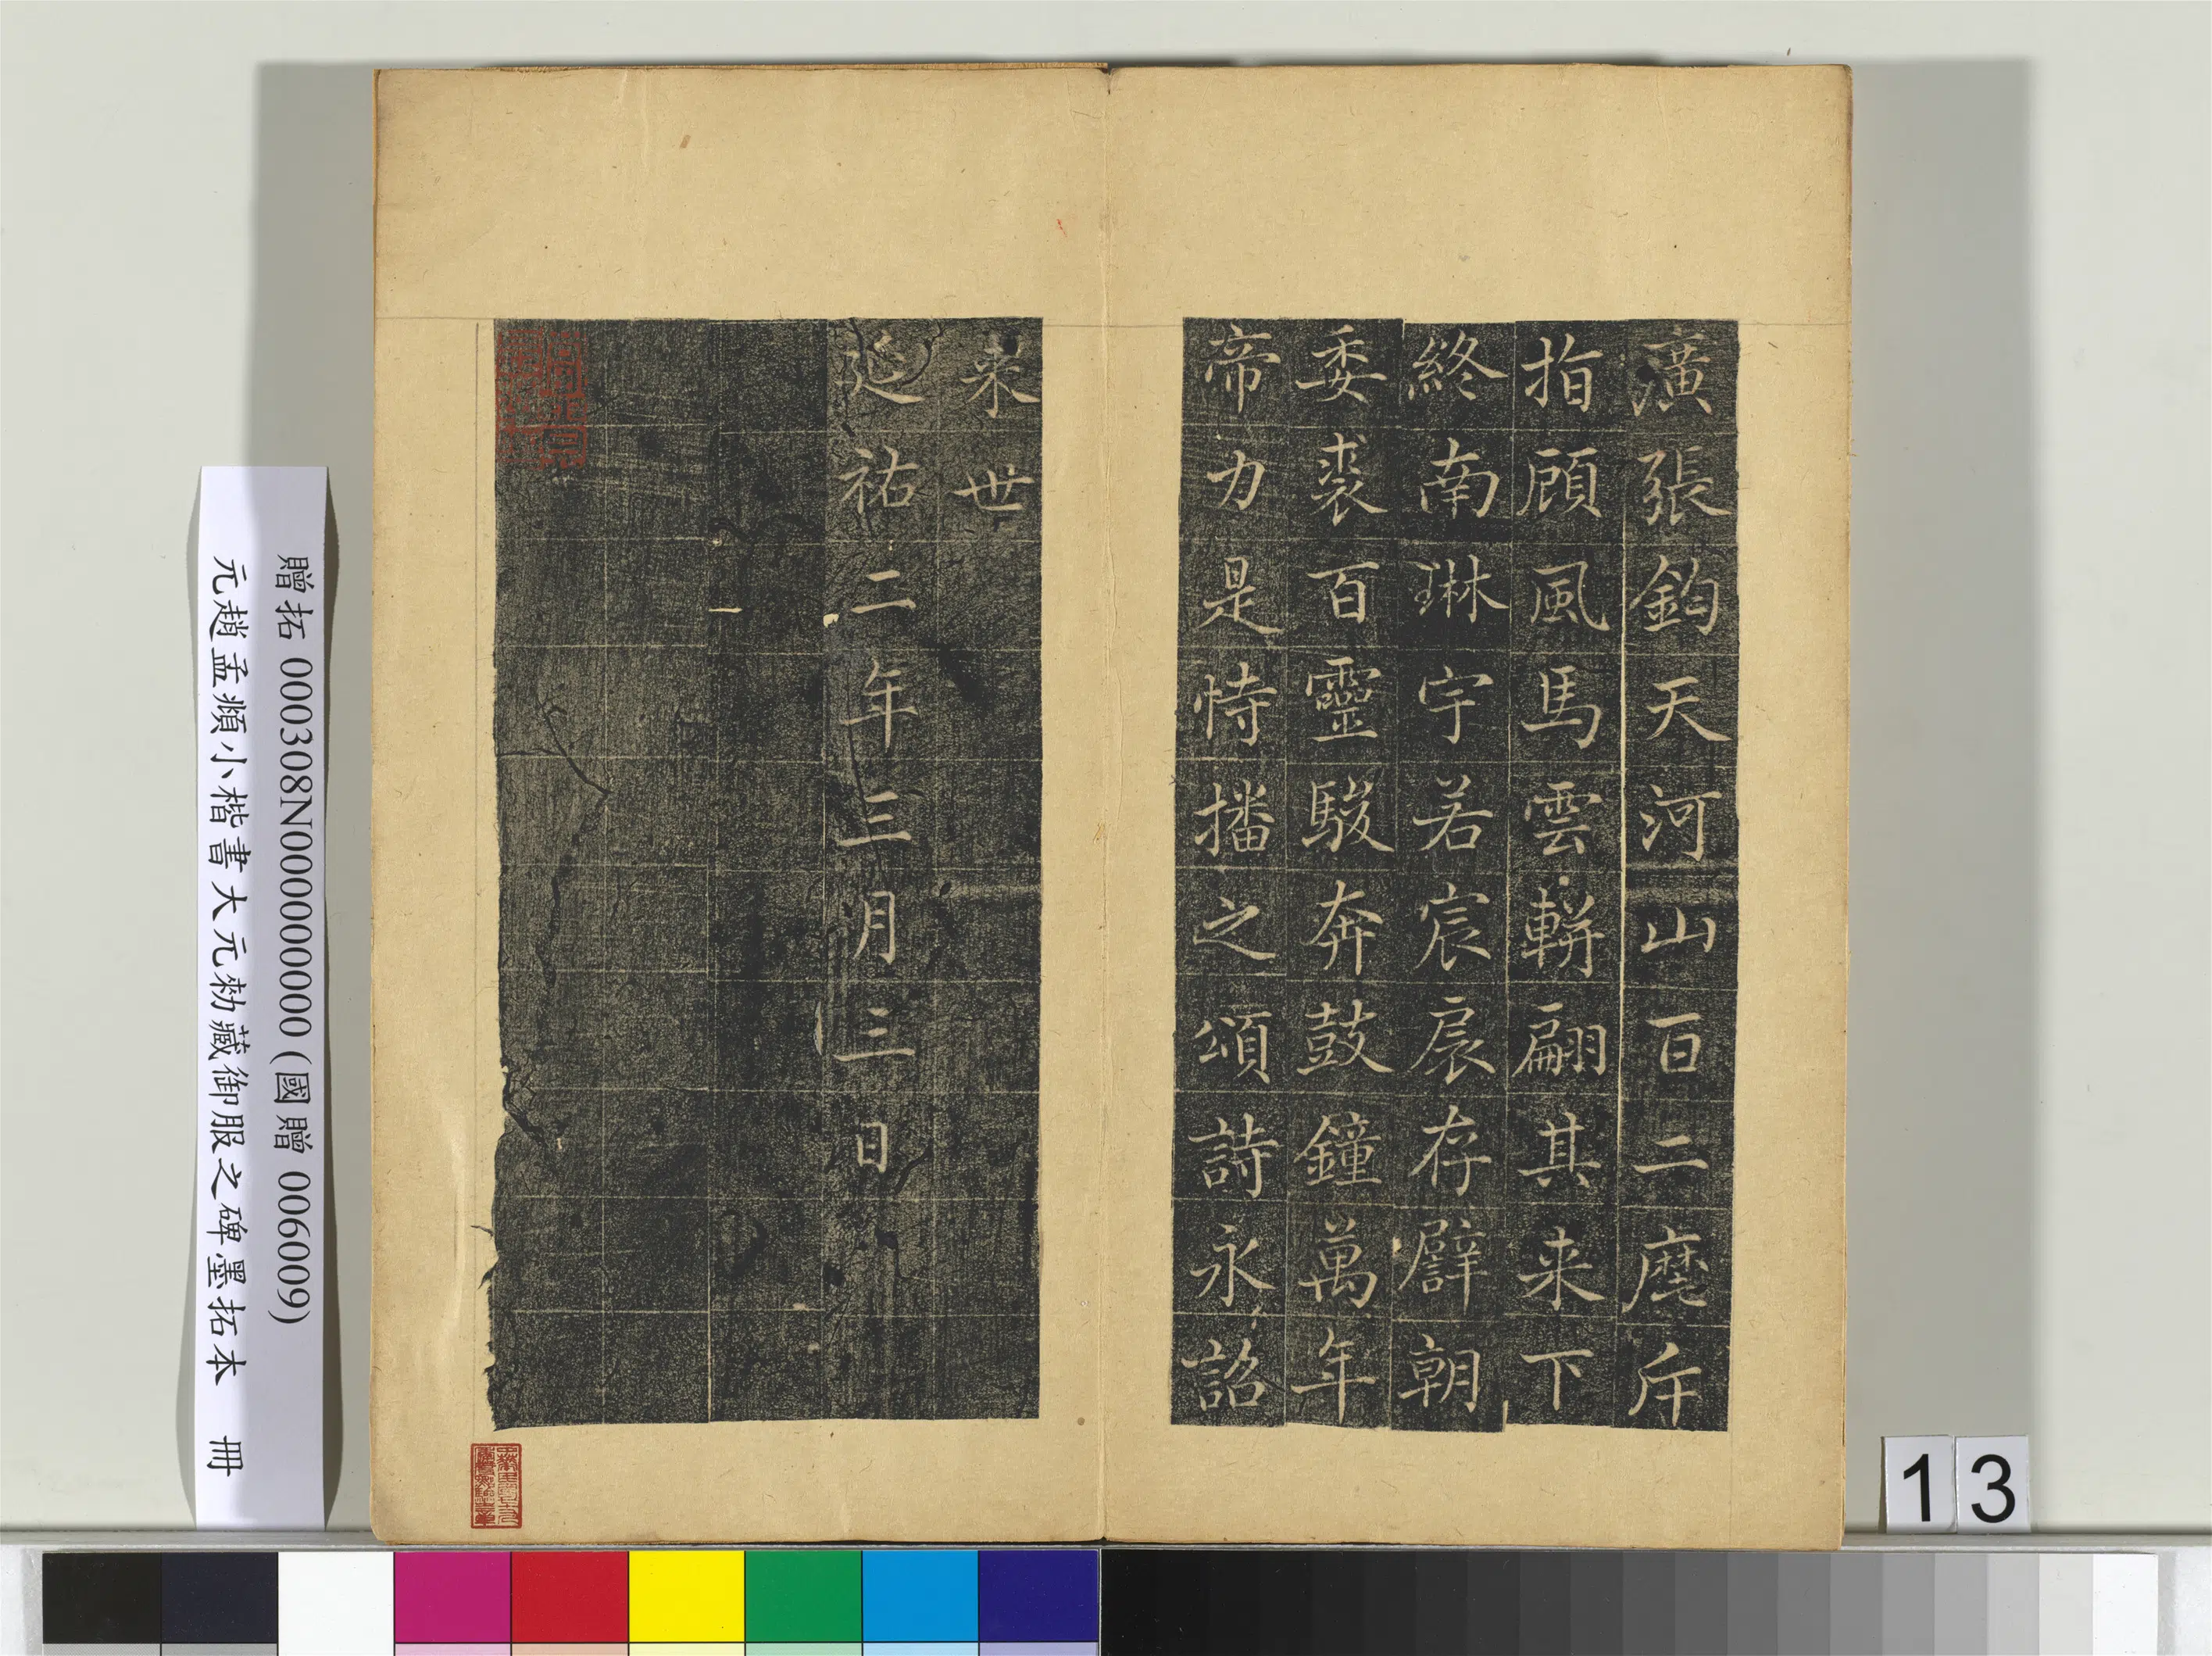 廣張鈞天河山百二塵斥
指顧風馬雲軿翩其来下
終南琳宇若宸扆存辟朝
委裘百靈駿奔鼓鐘萬年
帝力是恃播之頌詩永詔
来世
延祐二年三月三日
贈拓 000308N000000000 (國贈 006009)
元趙孟頫小楷書大元勑藏御服之碑墨拓本 冊
13